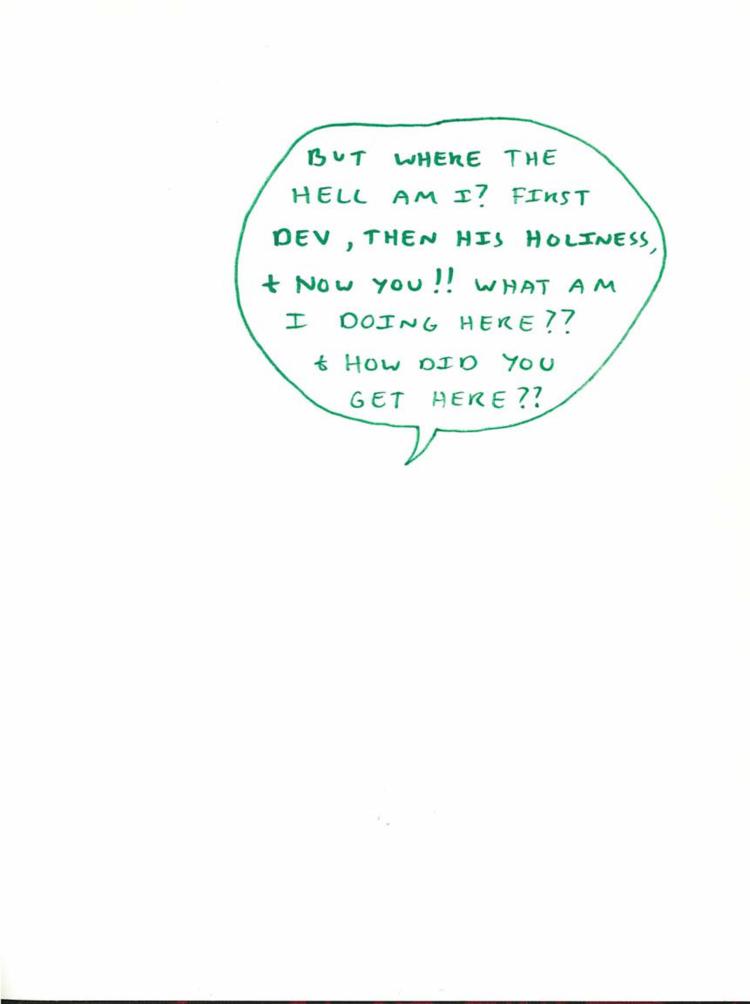 BUT WHERE THE
HELL AM I? FIRST
DEV, THEN HIS HOLINESS,
+ NOW YOU!! WHAT AM
I DOING HERE??
+ HOW DID YOU
GET HERE??